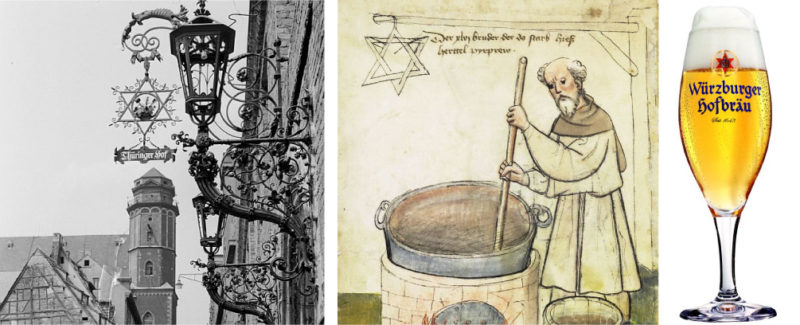 Thüringer Hof
Der xlvi bruder der do starb hieß
herttel pyrprew.
Würzburger
Hofbräu